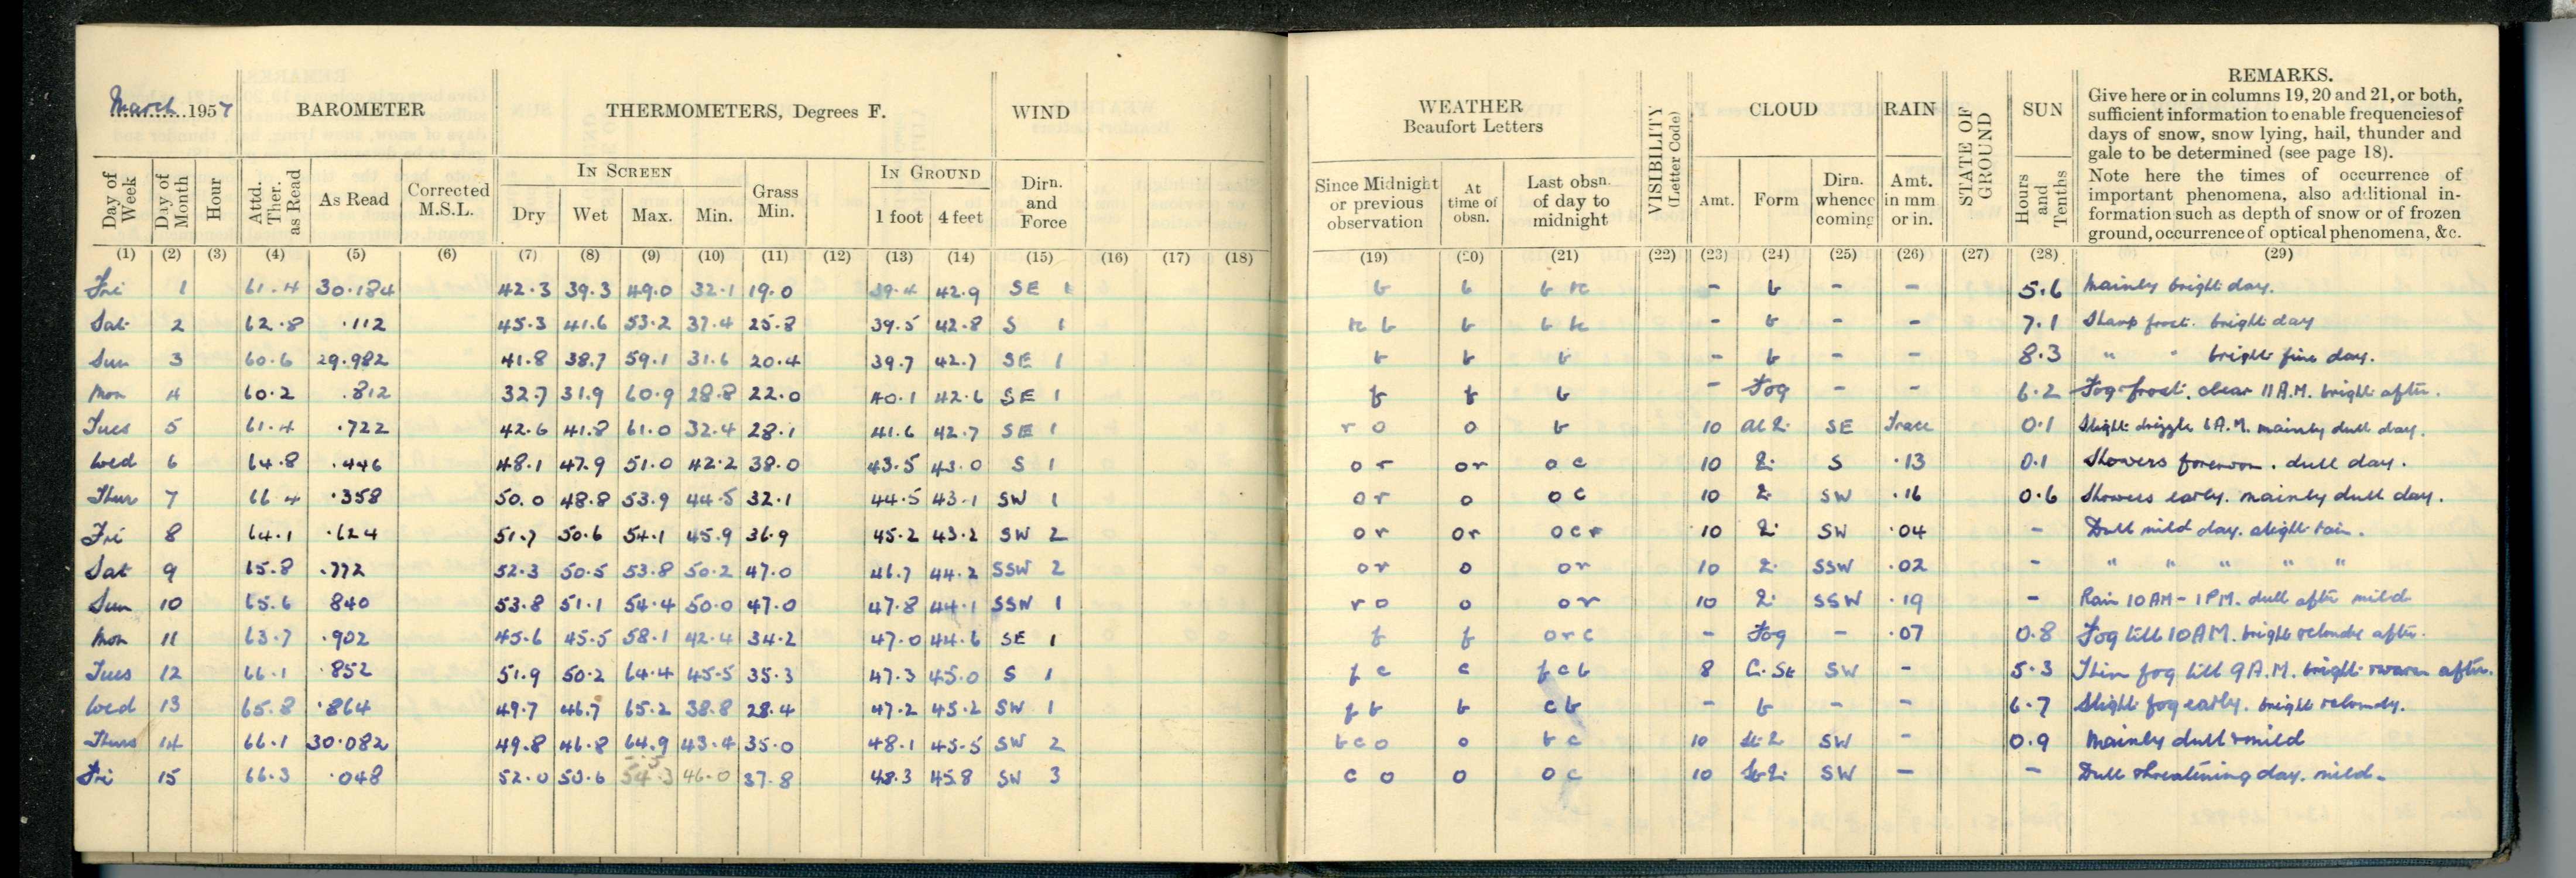 March 1957
BAROMETER
THERMOMETERS, Degrees F.
WIND
WEATHER
Beaufort Letters
VISIBILITY
(Letter Code)
CLOUD
RAIN
STATE OF GROUND
SUN
REMARKS.
Give here or in columns 19, 20 and 21, or both,
sufficient information to enable frequencies of
days of snow, snow lying, hail, thunder and
gale to be determined (see page 18).
Note here the times of occurrence of
important phenomena, also additional in-
formation such as depth of snow or of frozen
ground, occurrence of optical phenomena, &c.
Day of Week
Day of Month
Hour
Attd. Ther. as Read
As Read
Corrected M.S.L.
IN SCREEN
Dry Wet Max. Min.
Grass Min.
IN GROUND
1 foot 4 feet
Dirn. and Force
Since Midnight or previous observation
At time of obsn.
Last obsn. of day to midnight
Amt. Form
Dirn. whence coming
Amt. in mm. or in.
Hours and Tenths
(1) (2) (3) (4) (5) (6) (7) (8) (9) (10) (11) (12) (13) (14) (15) (16) (17) (18) (19) (20) (21) (22) (23) (24) (25) (26) (27) (28) (29)
Fri 1 61.4 30.184 42.3 39.3 49.0 32.1 19.0 39.4 42.9 SE 1 b b b - b - - 5.6 Mainly bright day.
Sat 2 62.8 .112 45.3 41.6 53.2 37.4 25.8 39.5 42.8 S 1 b b b - b - - 7.1 Sharp frost. bright day
Sun 3 60.6 29.982 41.8 38.7 59.1 31.6 20.4 39.7 42.7 SE 1 b b b - b - - 8.3 " " bright fine day.
Mon 4 60.2 .812 32.7 31.9 60.9 28.8 22.0 40.1 42.6 SE 1 f f b - Fog - - 6.2 Fog + frost. clear 11 A.M. bright after.
Tues 5 61.4 .722 42.6 41.8 61.0 32.4 28.1 41.6 42.7 SE 1 r o o b 10 SE Trace 0.1 Slight drizzle 6 A.M. mainly dull day.
Wed 6 64.8 .446 48.1 47.9 51.0 42.2 38.0 43.5 43.0 S 1 o r or o c 10 S .13 0.1 Showers forenoon. dull day.
Thur 7 66.4 .358 50.0 48.8 53.9 44.5 32.1 44.5 43.1 SW 1 o r o o c 10 SW .16 0.6 Showers early. mainly dull day.
Fri 8 64.1 .624 51.7 50.6 54.1 45.9 36.9 45.2 43.2 SW 2 o r or o c r 10 SW .04 - Dull mild day. slight rain.
Sat 9 65.8 .772 52.3 50.5 53.8 50.2 47.0 46.7 44.2 SSW 2 o r o o r 10 SSW .02 - " " " " "
Sun 10 65.6 840 53.8 51.1 54.4 50.0 47.0 47.8 44.1 SSW 1 r o o o r 10 SSW .19 - Rain 10 AM - 1 PM. dull after mild
Mon 11 63.7 .902 45.6 45.5 58.1 42.4 34.2 47.0 44.6 SE 1 f f o r c - Fog - .07 0.8 Fog till 10 AM. bright + cloudy after.
Tues 12 66.1 .852 51.9 50.2 64.4 45.5 35.3 47.3 45.0 S 1 f c c f c b 8 C.St SW - 5.3 Thin fog till 9 A.M. bright + warm after.
Wed 13 65.8 .864 49.7 46.7 65.2 38.8 28.4 47.2 45.2 SW 1 f b b c b - b - - 6.7 Slight fog early. bright + cloudy.
Thurs 14 66.1 30.082 49.8 46.8 64.9 43.4 35.0 48.1 45.5 SW 2 b c o o b c 10 SW - 0.9 Mainly dull + mild
Fri 15 66.3 .048 52.0 50.6 46.0 37.8 48.3 45.8 SW 3 c o o o c 10 SW - - Dull threatening day. mild.